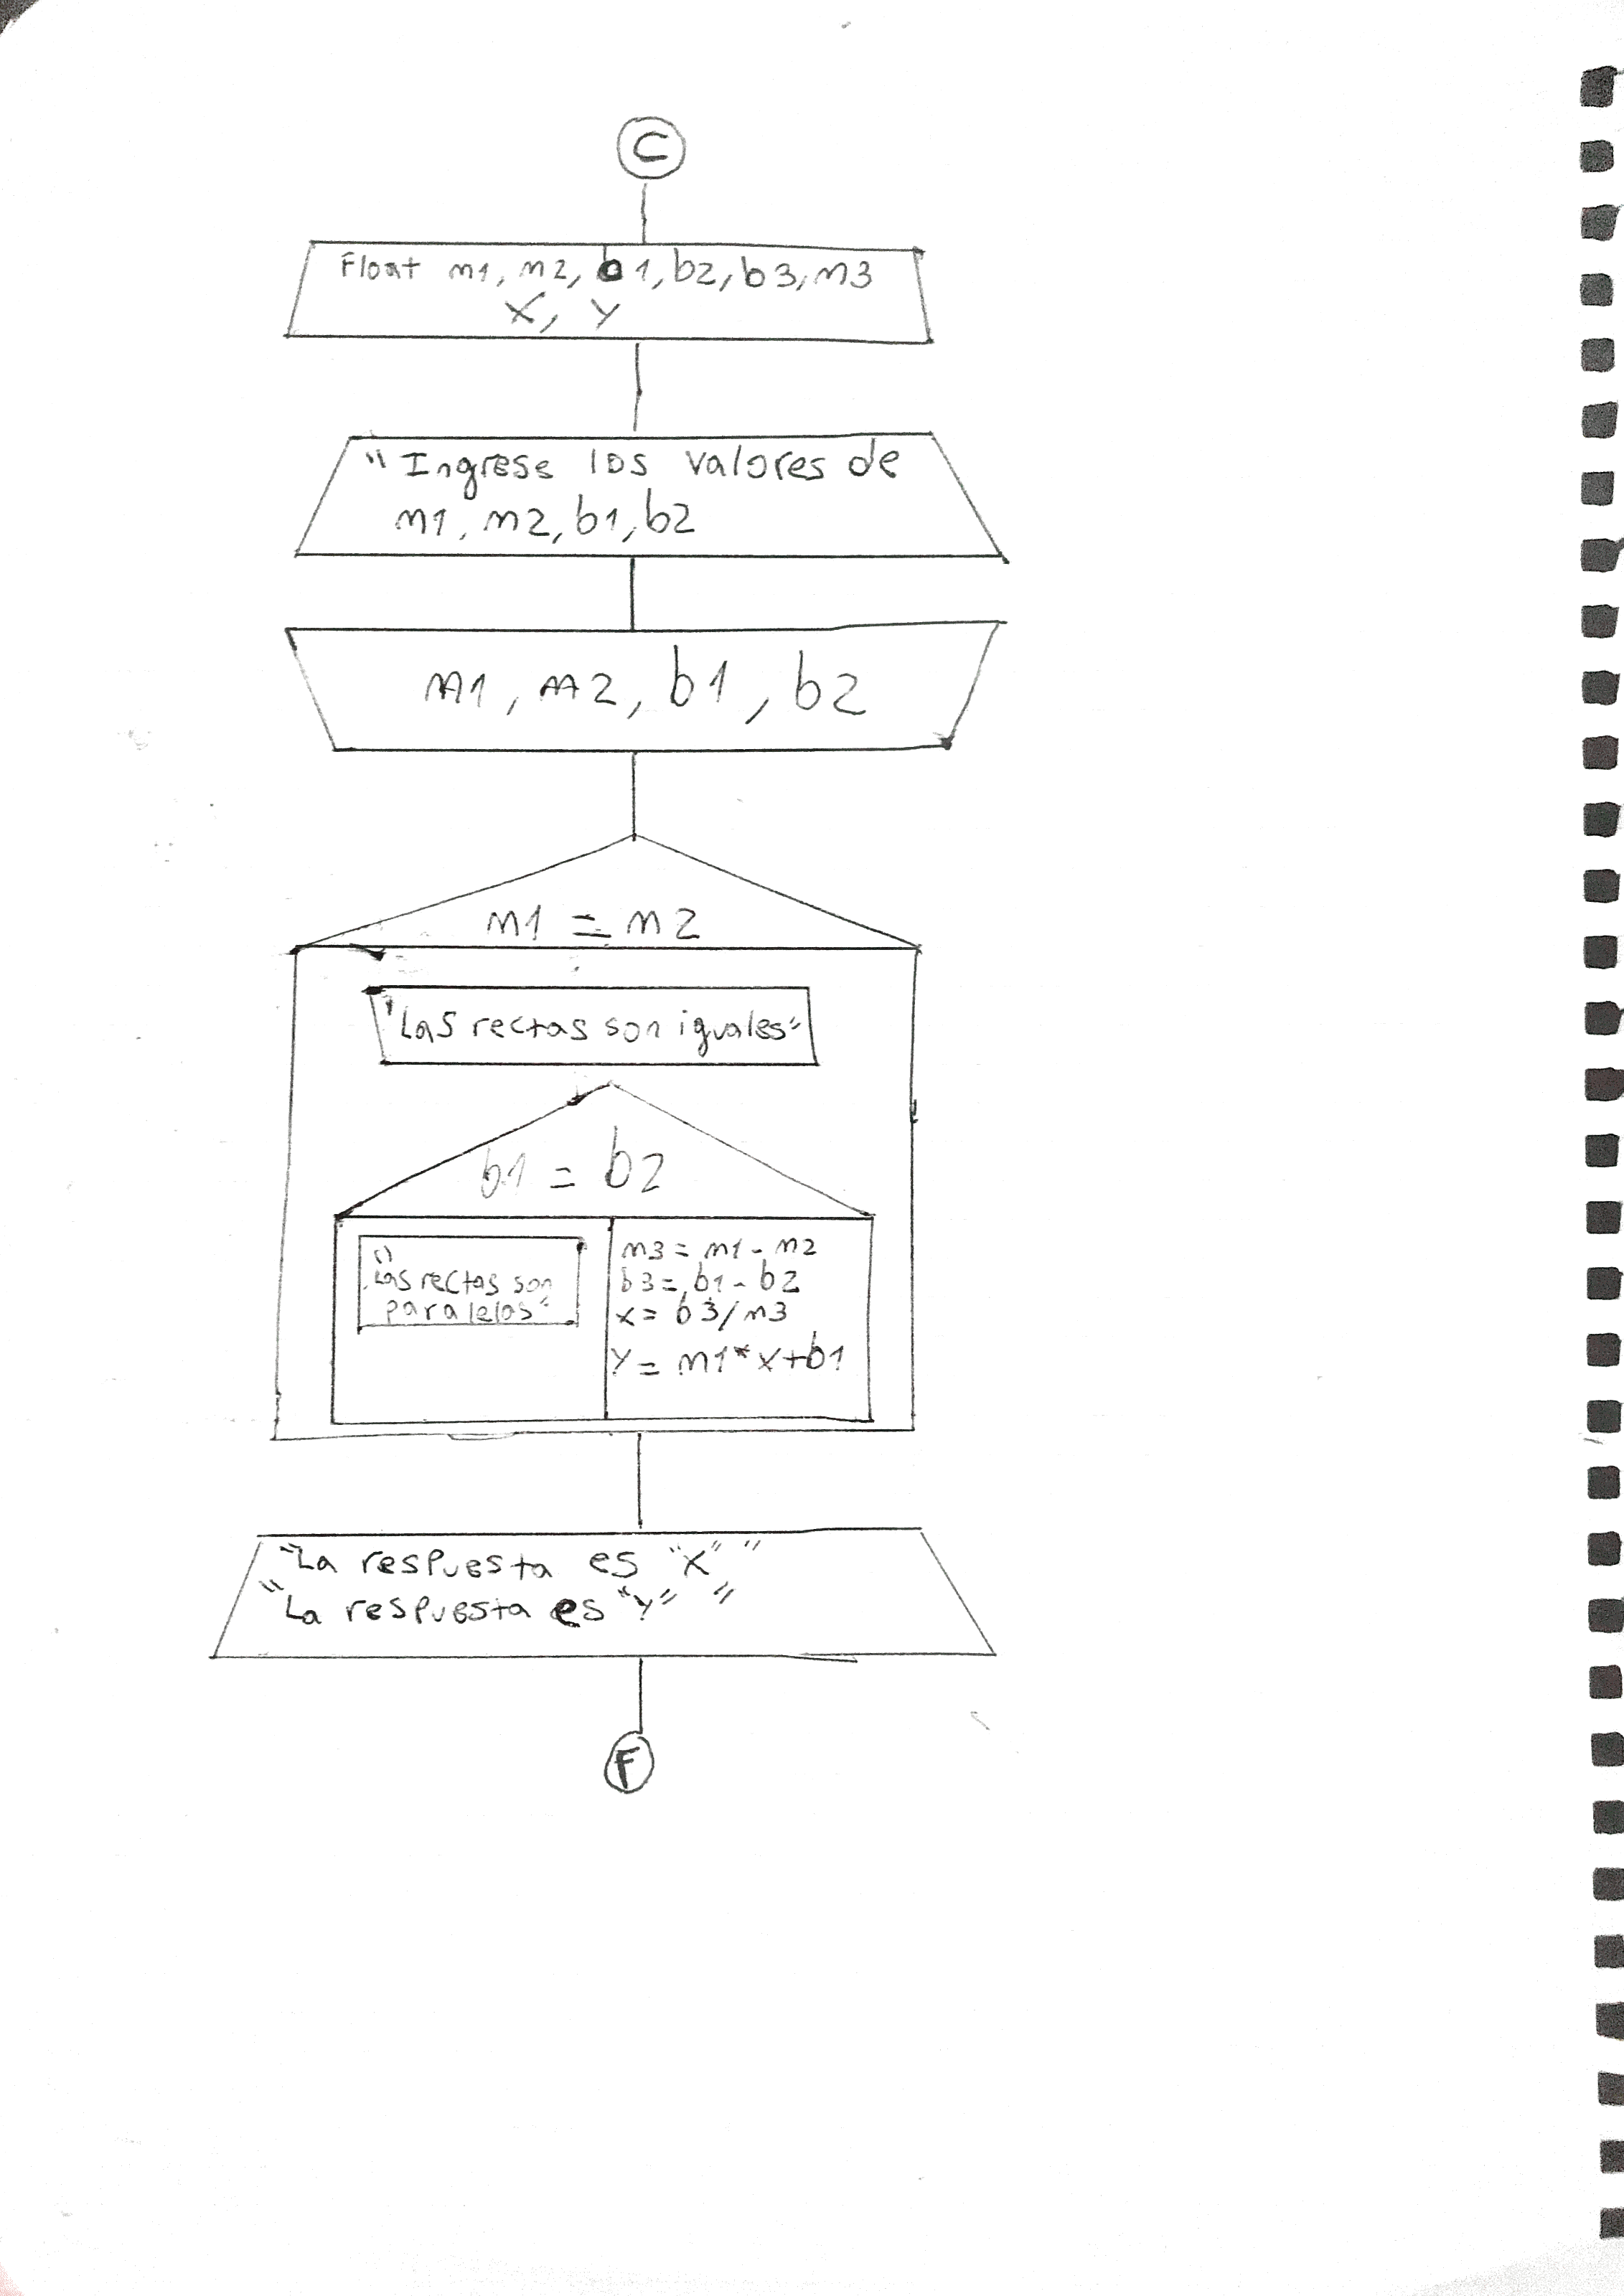 C
Float m1, m2, b1, b2, b3, m3
X, Y
"Ingrese los valores de
m1, m2, b1, b2
m1, m2, b1, b2
m1 = m2
"Las rectas son iguales"
b1 = b2
"
Las rectas son
paralelas"
m3 = m1 - m2
b3 = b1 - b2
x = b3/m3
Y = m1*x+b1
"La respuesta es "X" "
"La respuesta es "Y" "
F